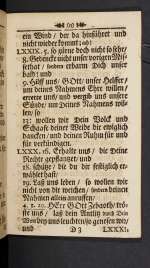 ein Wind / der da hinfähret und
nicht wieder kommt; ob!
LXXIX. 5. so zürne doch nicht so sehr/
8. Gedencke nicht unser vorigen Mis-
sethat / sondern erbarm Dich unser
bald! und
9. hilff uns / GOtt / unser Helffer/
um deines Nahmens Ehre willen/
errette uns / und vergib uns unsere
Sünde / um Deines Nahmens wil-
len / so
13. wollen wir Dein Volck und
Schafe deiner Weide dir ewiglich
dancken / und deinen Ruhm für und
für verkündigen.
LXXX. 16. Erhalte uns / die Deine
Rechte gepflantzet / und
18. schütze / die du dir festiglich er-
wählet hast/
19. Laß uns leben / so wollen wir
nicht von dir weichen / sondern deinen
Nahmen allein anruffen/
4. 8. 20. HErr GOtt Zebaoth / trö-
ste uns / laß dein Antlitz
über uns leuchten / so genesen wir/
und D 3 LXXXI.